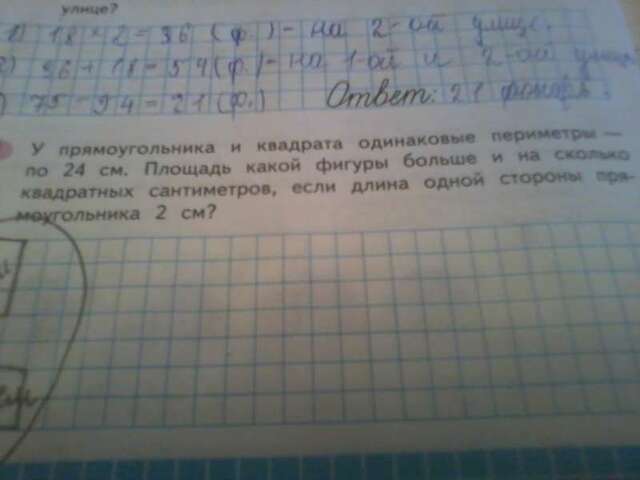 улице?
1) 18 × 2 = 36 (ф.) - на 2-ой улице.
2) 36 + 18 = 54 (ф.) - на 1-ой и 2-ой улице
) 75 - 54 = 21 (ф.) Ответ: 21 фонарь.
У прямоугольника и квадрата одинаковые периметры —
по 24 см. Площадь какой фигуры больше и на сколько
квадратных сантиметров, если длина одной стороны пря-
моугольника 2 см?